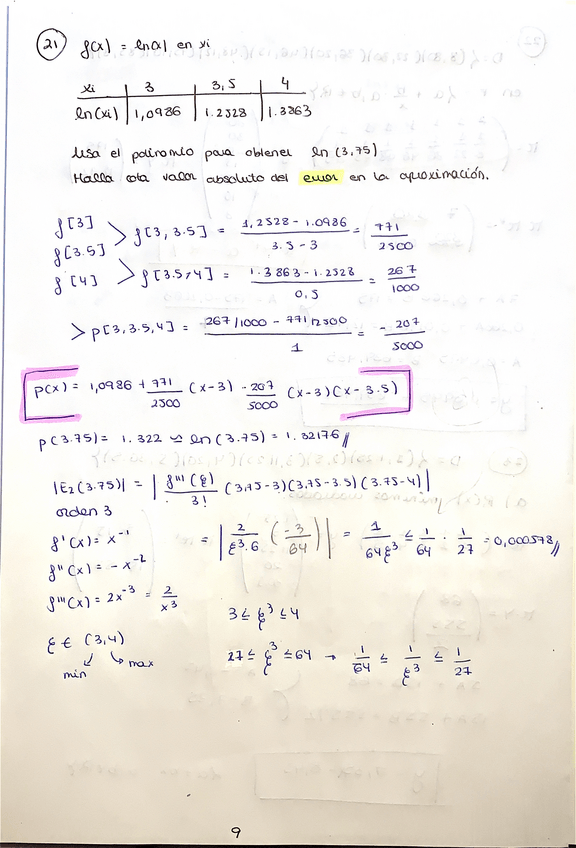 21 f(x) = ln(x) en xi
xi 3 3,5 4
ln(xi) 1,0986 1.2528 1.3863
Usa el polinomio para obtener ln (3,75)
Halla cota valor absoluto del error en la aproximación.
f[3]
f[3, 3.5] = 1,2528 - 1.0986 / 3.5 - 3 = 771 / 2500
f[3.5]
f[3.5, 4] = 1.3863 - 1.2528 / 0,5 = 267 / 1000
f[4]
p[3, 3.5, 4] = 267/1000 - 771/2500 / 1 = - 207 / 5000
p(x) = 1,0986 + 771/2500 (x-3) - 207/5000 (x-3)(x-3.5)
p(3.75) = 1.322 ≃ ln(3.75) = 1.32176 //
|E2(3.75)| = | f'''(ξ) / 3! (3,75-3)(3,75-3.5)(3.75-4) |
orden 3
f'(x) = x⁻¹ = | 2 / ξ³·6 ( -3 / 64 ) | = 1 / 64ξ³ ≤ 1/64 · 1/27 = 0,000578 //
f''(x) = - x⁻²
f'''(x) = 2x⁻³ = 2 / x³
3 ≤ ξ³ ≤ 4
ξ ∈ (3,4)
min max
27 ≤ ξ³ ≤ 64 → 1/64 ≤ 1/ξ³ ≤ 1/27
9